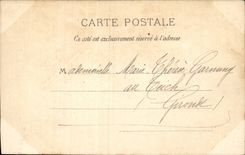 CARTE POSTALE
Ce côté est exclusivement réservé à l'adresse
Mademoiselle Marie Thérèse
au Tuch
(Gironde)